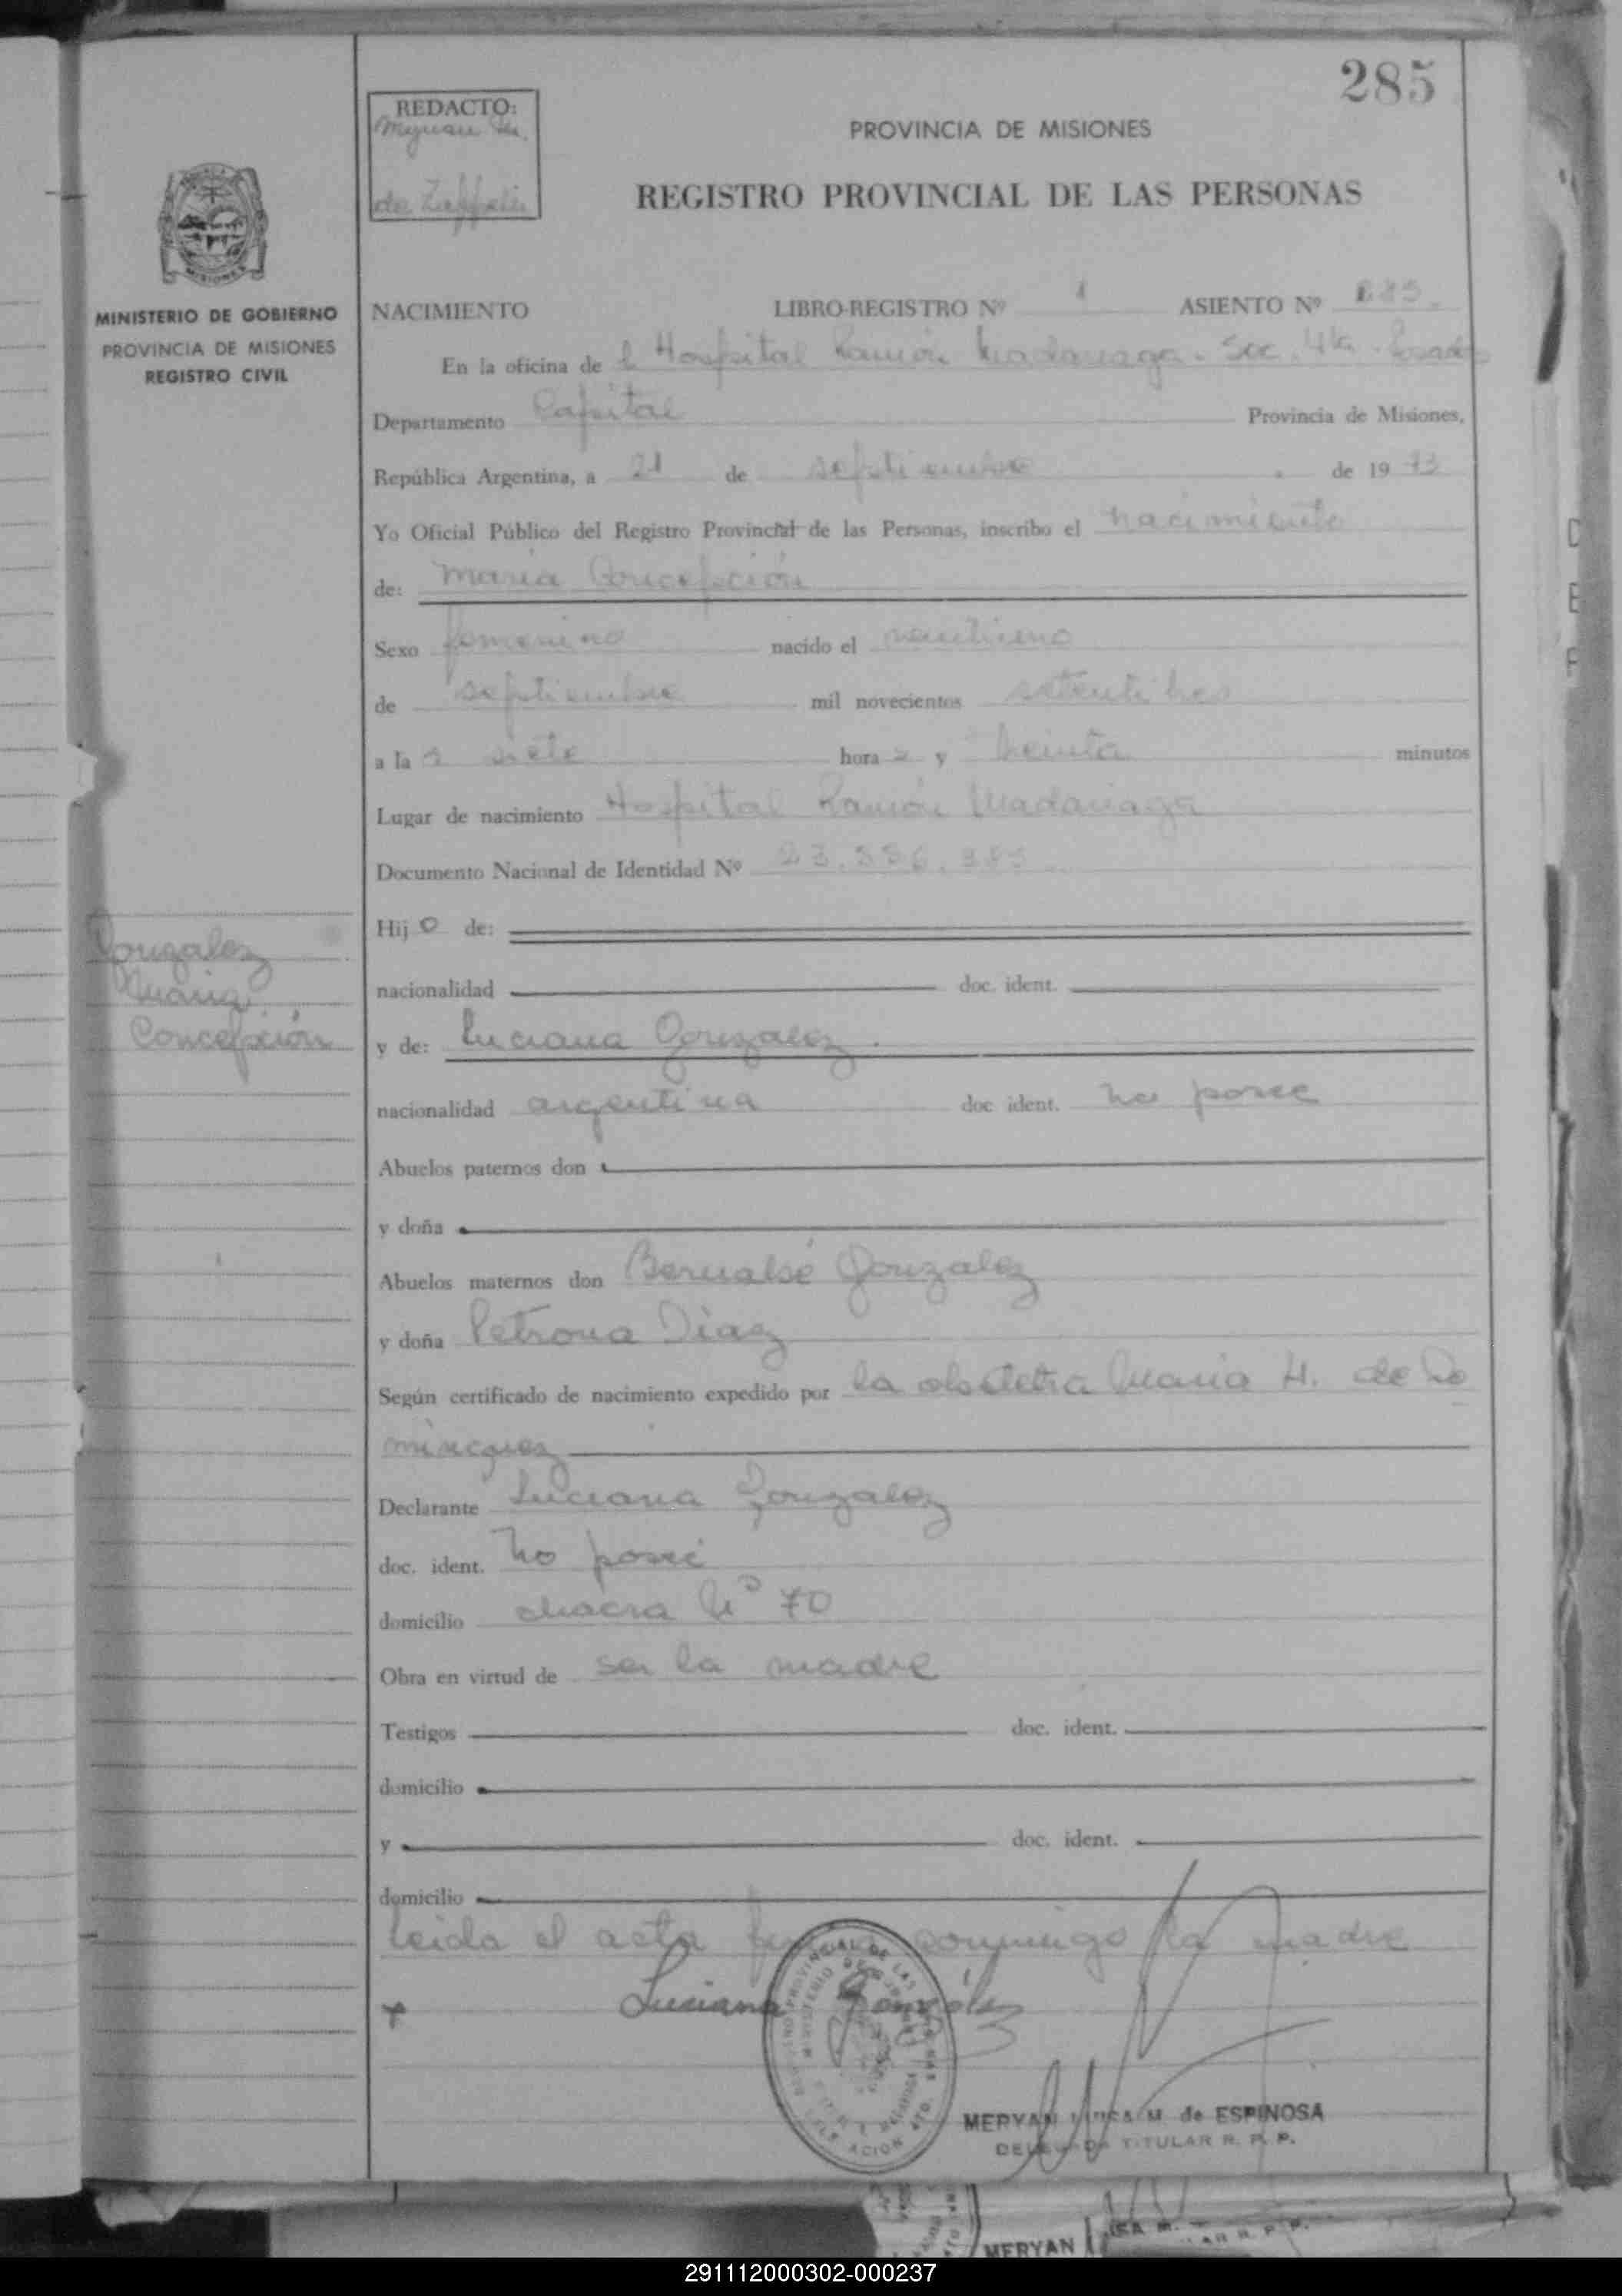 285
REDACTO:
de
PROVINCIA DE MISIONES
REGISTRO PROVINCIAL DE LAS PERSONAS
MINISTERIO DE GOBIERNO
PROVINCIA DE MISIONES
REGISTRO CIVIL
NACIMIENTO LIBRO-REGISTRO Nº 1 ASIENTO Nº 285
En la oficina de l Hospital Ramón Madariaga. Sec. 4ta. Posadas
Departamento Capital Provincia de Misiones,
República Argentina, a 21 de septiembre de 1973
Yo Oficial Público del Registro Provincial de las Personas, inscribo el nacimiento
de: María Concepción
Sexo femenino nacido el veintiuno
de septiembre mil novecientos setentitres
a la s siete hora s y treinta minutos
Lugar de nacimiento Hospital Ramón Madariaga
Documento Nacional de Identidad Nº 23.
Hij o de:
nacionalidad doc. ident.
Gonzalez
María
Concepción
y de: Luciana Gonzalez.
nacionalidad argentina doc ident. no posee
Abuelos paternos don
y doña
Abuelos maternos don Gonzalez
y doña Petrona Díaz
Según certificado de nacimiento expedido por la obstetra María H. de Do
minguez
Declarante Luciana Gonzalez
doc. ident. no posee
domicilio chacra Nº 70
Obra en virtud de ser la madre
Testigos doc. ident.
domicilio
y doc. ident.
domicilio
Leida el acta firma conmigo la madre
Luciana González
MERYAN LUISA M. de ESPINOSA
DELEGADA TITULAR R. P. P.
MERYAN
291112000302-000237